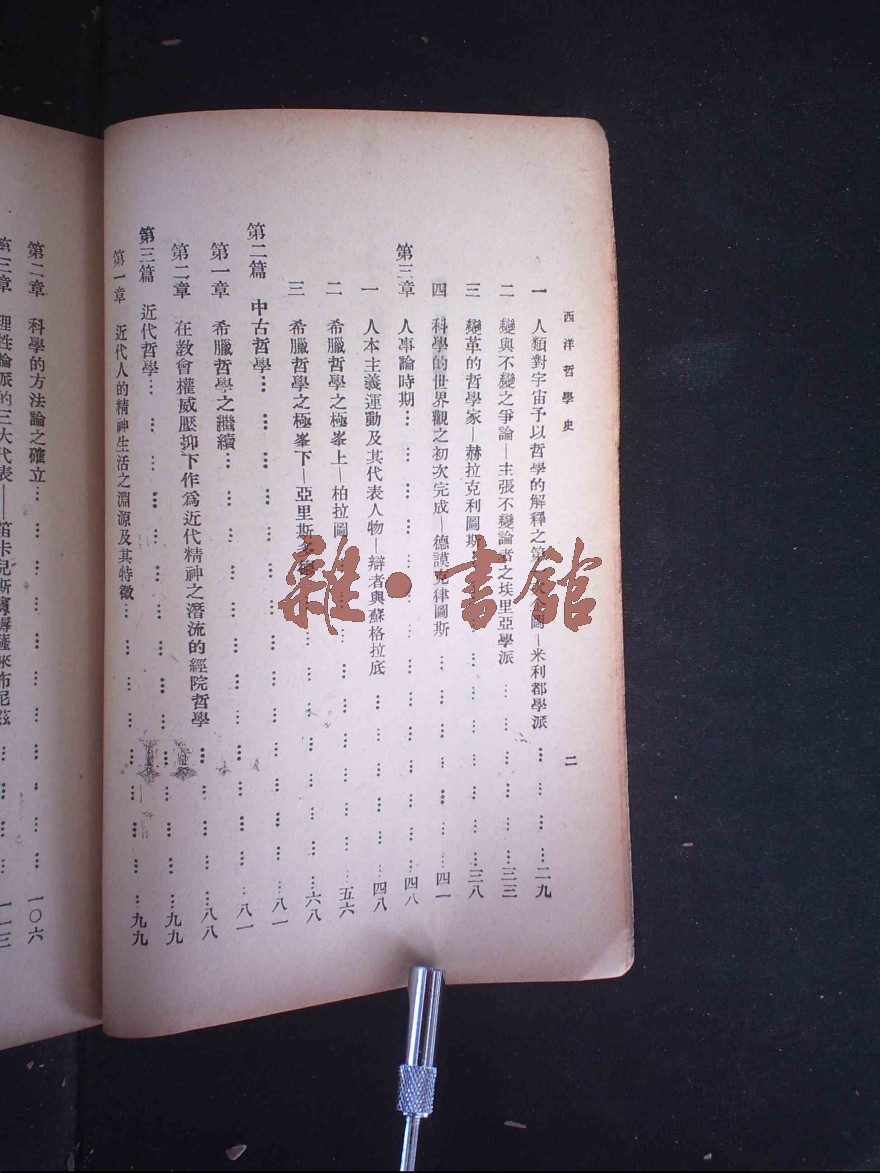 西洋哲學史
二
一 人類對宇宙予以哲學的解釋之第一次企圖—米利都學派……………二九
二 變與不變之爭論—主張不變論者之埃里亞學派……………三三
三 變革的哲學家—赫拉克利圖斯……………三八
四 科學的世界觀之初次完成—德謨克律圖斯……………四一
第三章 人事論時期……………四八
一 人本主義運動及其代表人物—辯者與蘇格拉底……………四八
二 希臘哲學之極峯上—柏拉圖……………五六
三 希臘哲學之極峯下—亞里斯多德……………六八
第二篇 中古哲學……………八一
第一章 希臘哲學之繼續……………八一
第二章 在教會權威壓抑下作爲近代精神之潛流的經院哲學……………八八
第三篇 近代哲學……………九九
第一章 近代人的精神生活之淵源及其特徵……………九九
第二章 科學的方法論之確立……………一〇六
第三章 理性論派的三大代表——笛卡兒斯賓挪薩來布尼茲……………一一三
雜·書館